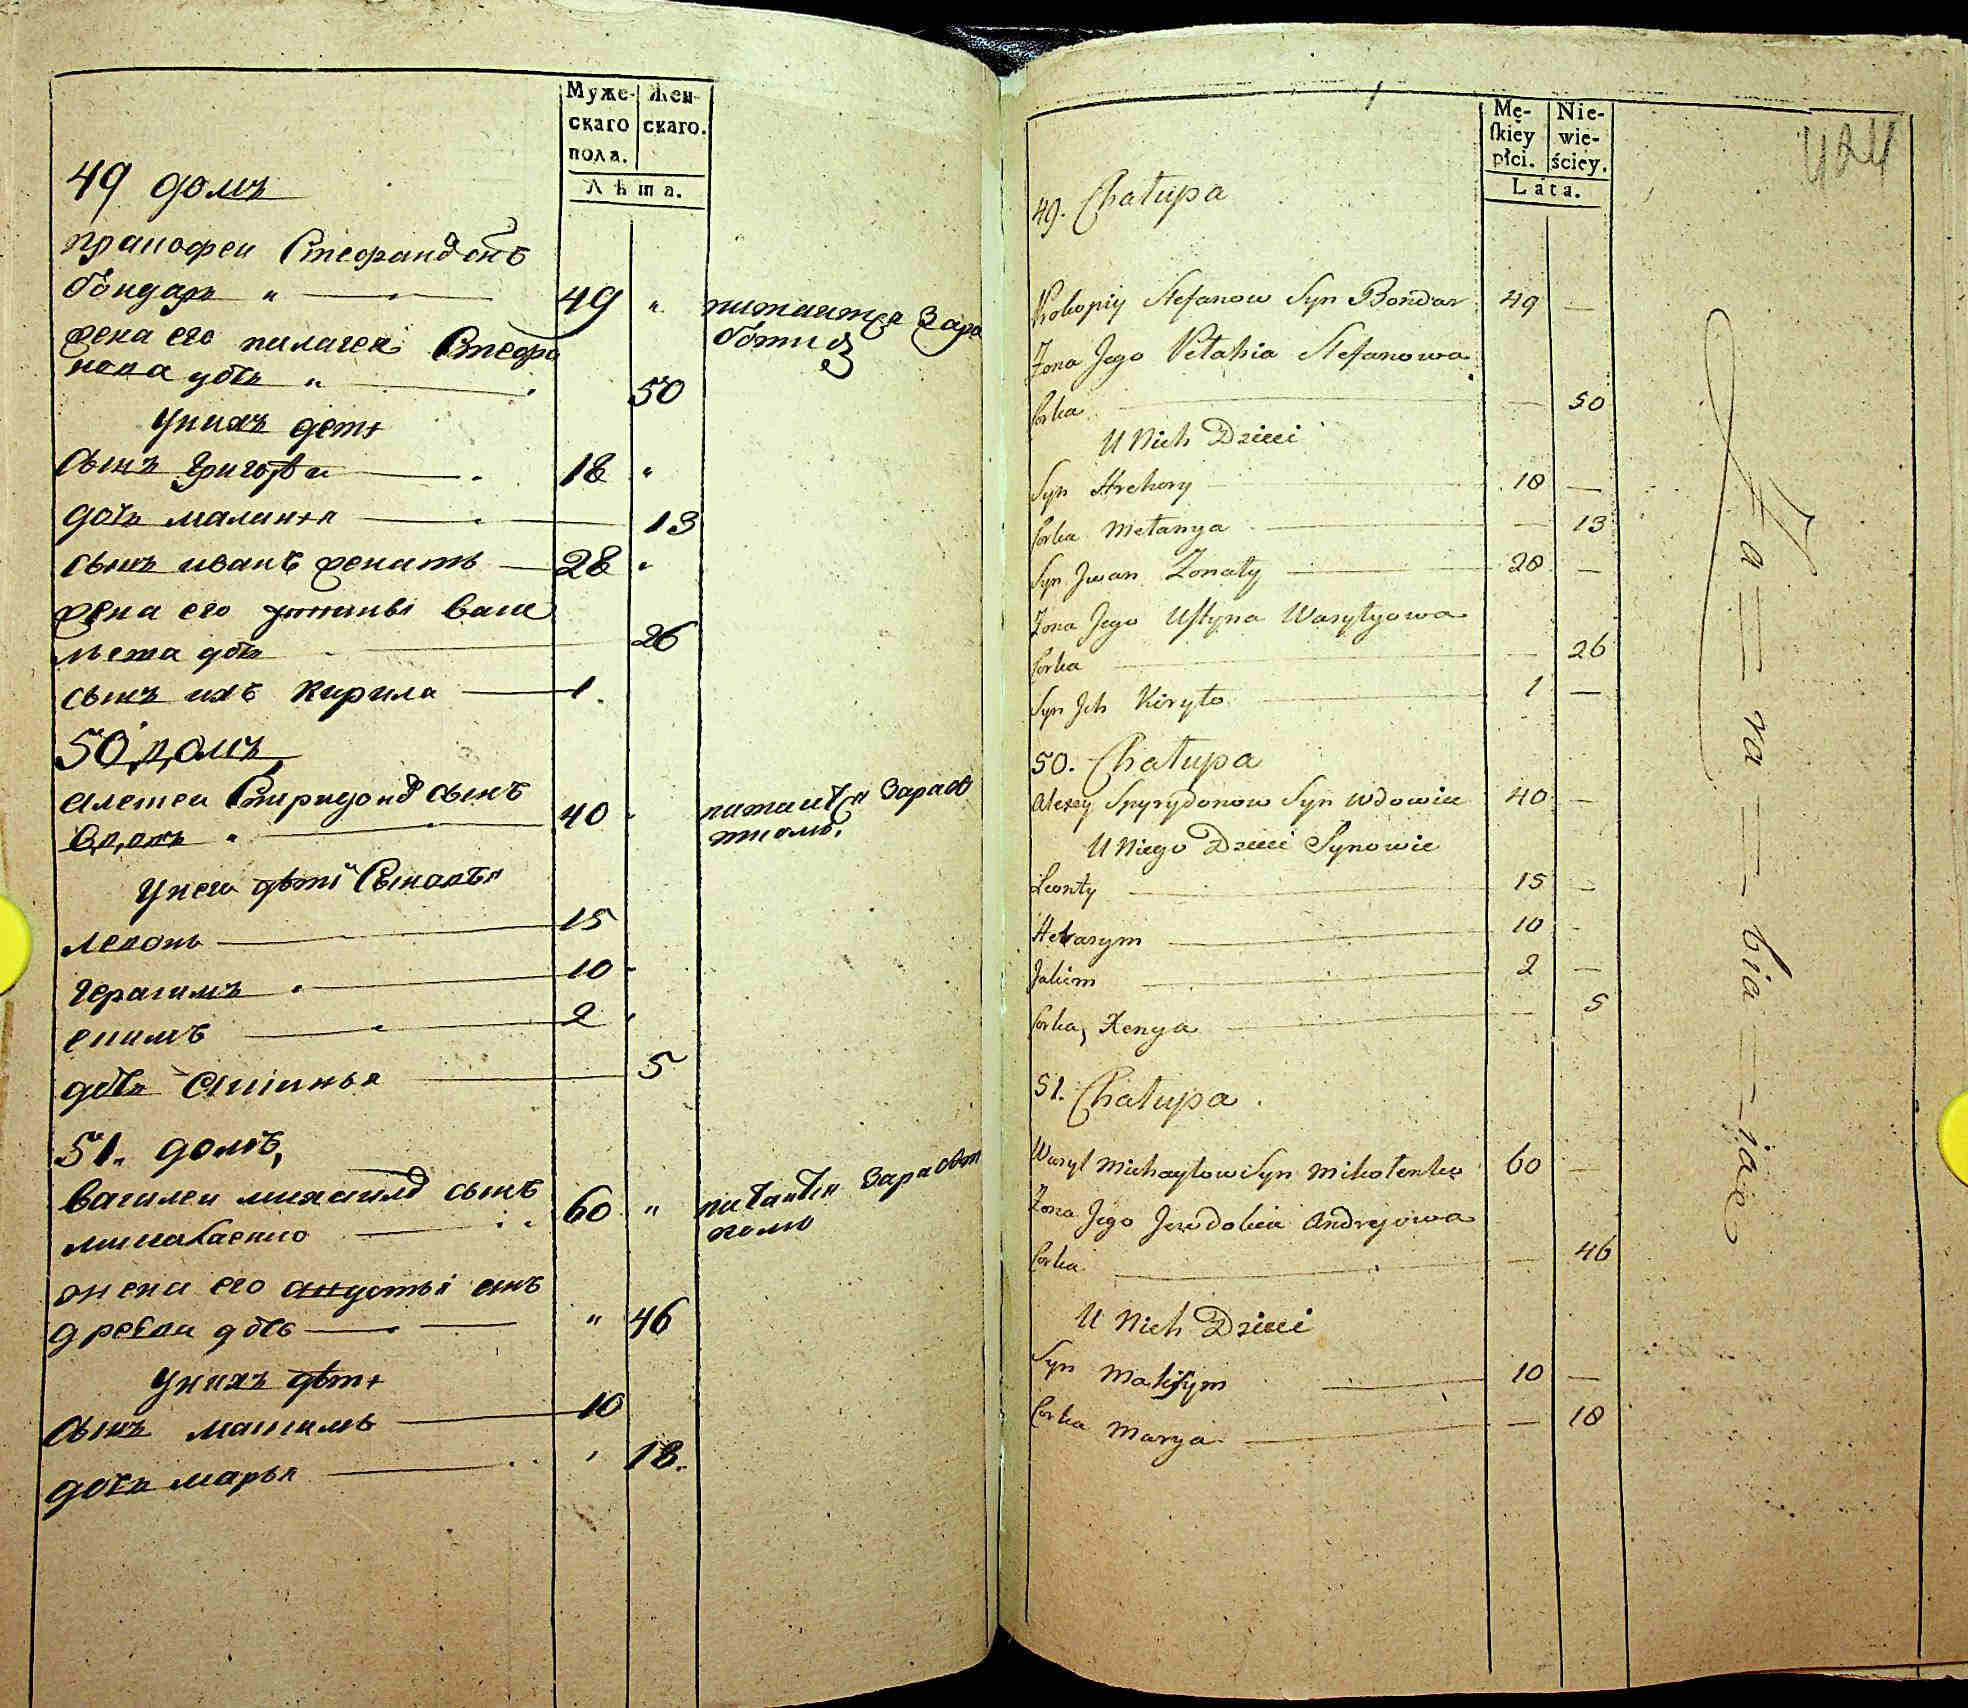 Муже-
скаго
пола.
Жен-
скаго.
Лѣта.
49 домъ
Стефанов снъ
бондаръ " 49 "
питаится Заро
ботко
жена его пилагея Стефа
нова дочъ " 50
у нихъ дети
сынъ григорѣи 18 "
дочъ малания 13
сынъ иванъ женатъ 28 "
жена его васи
лъева дочъ 26
сынъ ихъ кирила 1
50 домъ
алетеи Спиридонов сынъ
вдовъ " 40
питаится Зарабо
ткомъ
у него дѣти Сыновъя
левонъ 15
герасимъ 10
екимъ 2
дочъ 5
51. домъ,
василеи михаилов сынъ
миколаенко 60 "
питаится Заработ
комъ
жена его ан
дреева дочъ " 46
у нихъ дѣти
сынъ максимъ 10
дочъ маръя 18.
Mę-
skiey
płci.
Nie-
wie-
ściey.
Láta.
424
49. Chałupa
Prokopiy Stefanow Syn Bondar 49 —
Zona Jego Pełahia Stefanowa
Corka — 50
U Nich Dzieci
Syn Hrehory 18 —
Corka Mełanya — 13
Syn Jwan Zonaty 28 —
Zona Jego Ustyna Wasylyowa
Corka — 26
Syn Jch Kiryło 1 —
50. Chałupa
Alexey Spyrydonow Syn Wdowiec 40 —
U Niego Dzieci Synowie
Leonty 15 —
Herasym 10
Jakim 2 —
Corka, Xenya — 5
51. Chałupa
Wasyl Michayłow Syn Mikołenko 60 —
Zona Jego Jewdokia Andrejowa
Corka — 46
U Nich Dzieci
Syn Maksym 10 —
Corka Marya — 18
Za = ra = bia = jąc